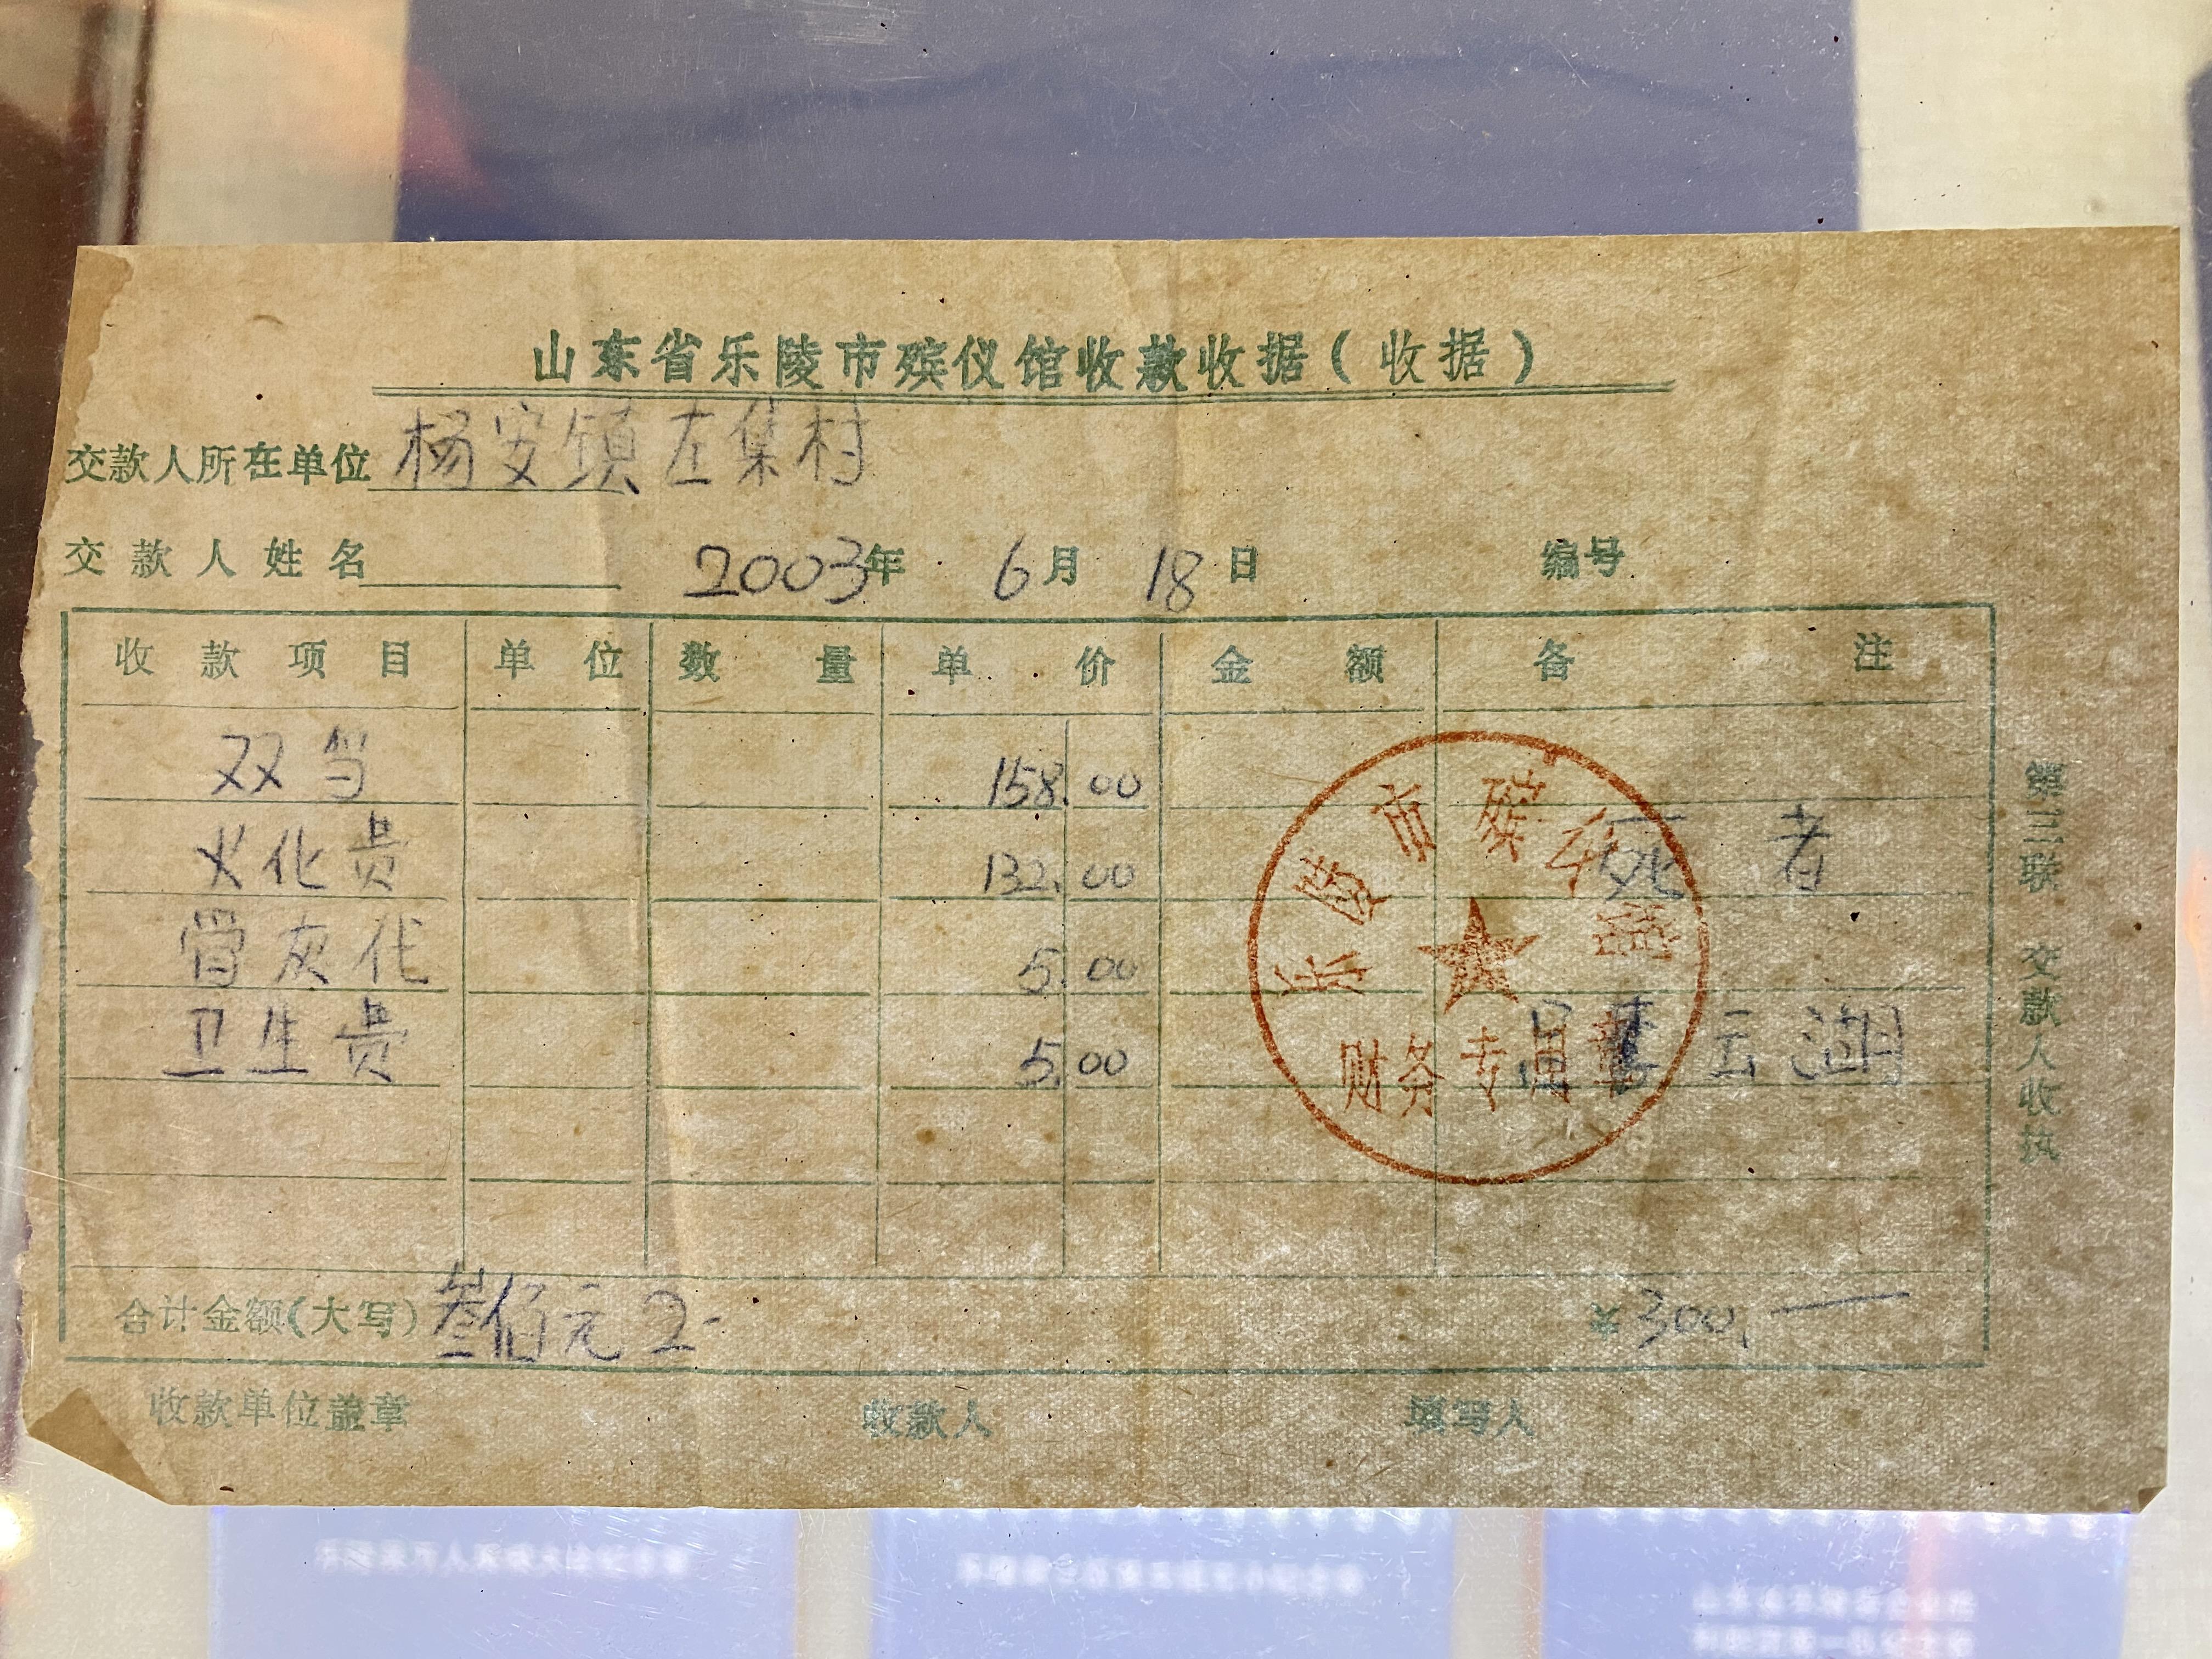 山东省乐陵市殡仪馆收款收据(收据)
交款人所在单位 杨安镇左集村
交款人姓名 2003年 6月 18日 编号
收款项目 单位 数量 单价 金额 备注
双当 158.00
火化贵 132.00 死者
骨灰代 5.00
卫生贵 5.00 李云湖
合计金额(大写) 叁佰元 ¥300.—
收款单位盖章 收款人 填写人
第三联 交款人收执
乐陵市殡仪馆
财务专用章